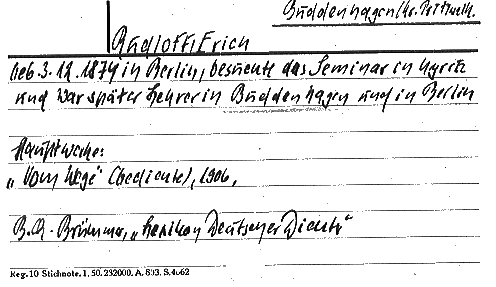 Buddenhagen/Kr. Pritzwalk.
Budloff, Erich
Geb. 3. 12. 1874 in Berlin, besuchte das Seminar in Kyritz
und war später Lehrer in Buddenhagen und in Berlin
Hauptwerke:
„Vom Wege" (Gedichte), 1906,
B. A. Brümmer, „Lexikon Deutscher Dichter"
Reg. 10 Stichnote. 1. 50. 232000. A. 803. S. 4662